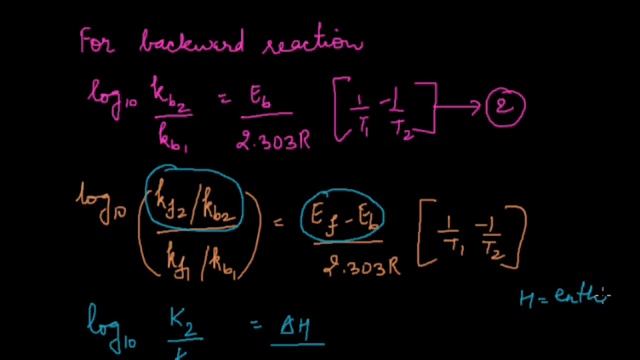 For backward reaction
log10 kb2/kb1 = Eb/2.303R [1/T1 - 1/T2] → 2
log10 (kf2/kb2 / kf1/kb1) = Ef - Eb/2.303R [1/T1 - 1/T2]
H =
log10 K2/ = ΔH